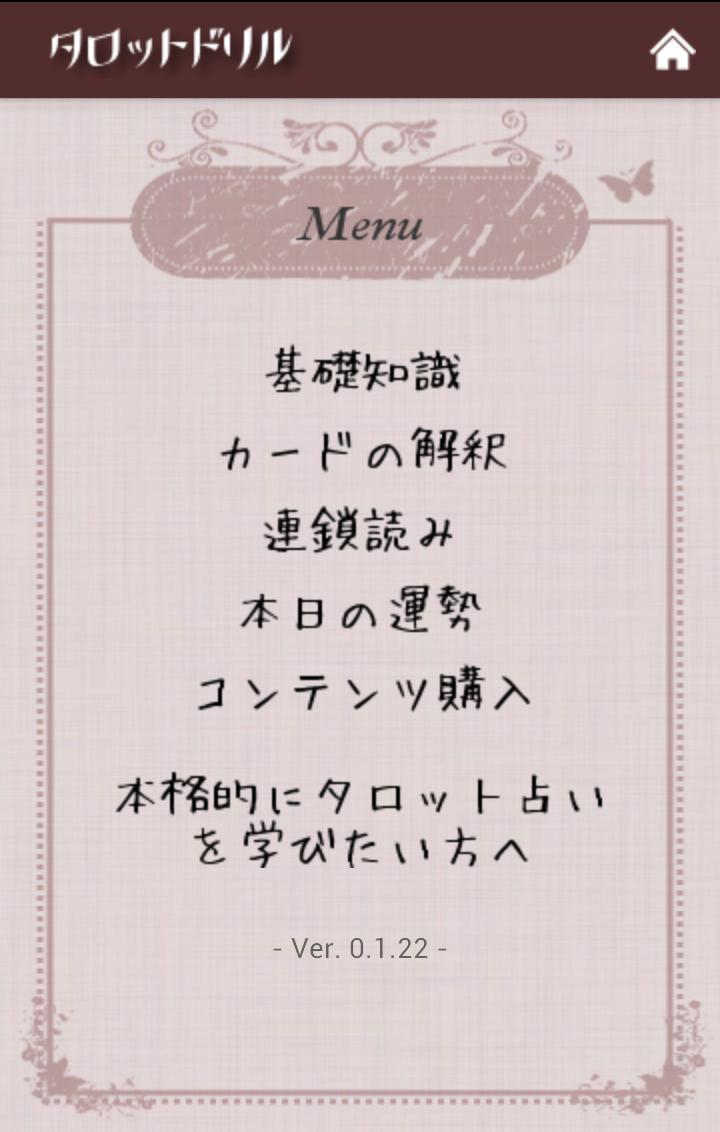 タロットドリル
Menu
基礎知識
カードの解釈
連鎖読み
本日の運勢
コンテンツ購入
本格的にタロット占い
を学びたい方へ
- Ver. 0.1.22 -